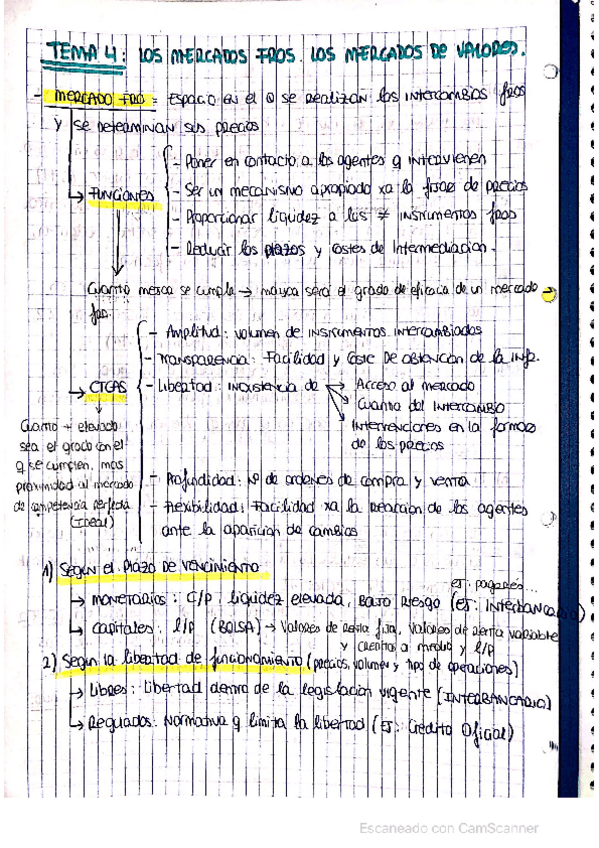 TEMA 4: LOS MERCADOS FROS. LOS MERCADOS DE VALORES.
- MERCADO FRO = ESPACIO EN EL Q SE REALIZAN los INTERCAMBIOS fros
y se determinan sus precios
- Poner en contacto a los agentes q intervienen
→ FUNCIONES - Ser un mecanismo apropiado xa la fijac de precios
- Proporcionar liquidez a los ≠ instrumentos fros
- Reducir los plazos y costes de Intermediación.
Cuanto mejor se cumpla → mayor será el grado de eficacia de un mercado
fro.
- Amplitud: volumen de instrumentos intercambiados
- Transparencia: Facilidad y coste de obtención de la info.
→ CTCAS - Libertad: inexistencia de → Acceso al mercado
Cuantía del intercambio
Intervenciones en la formac
de los precios
Cuanto + elevado
sea el grado con el
q se cumplen, mas
proximidad al mercado
de competencia perfecta
(Ideal)
- Profundidad: Nº de ordenes de compra y venta
- Flexibilidad: Facilidad xa la reacción de los agentes
ante la aparición de cambios
1) Según el plazo de vencimiento
ej: pagarés...
→ Monetarios: C/P liquidez elevada, Bajo Riesgo (ej: INTERBANCARIO)
→ Capitales: l/P (BOLSA) → Valores de renta fija, valores de renta variable
y creditos a medio y l/P
2) Según la libertad de funcionamiento (precios, volumen y tipo de operaciones)
→ Libres: libertad dentro de la legislación vigente (INTERBANCARIO)
→ Regulados: Normativa q limita la libertad (EJ: Crédito Oficial)
Escaneado con CamScanner